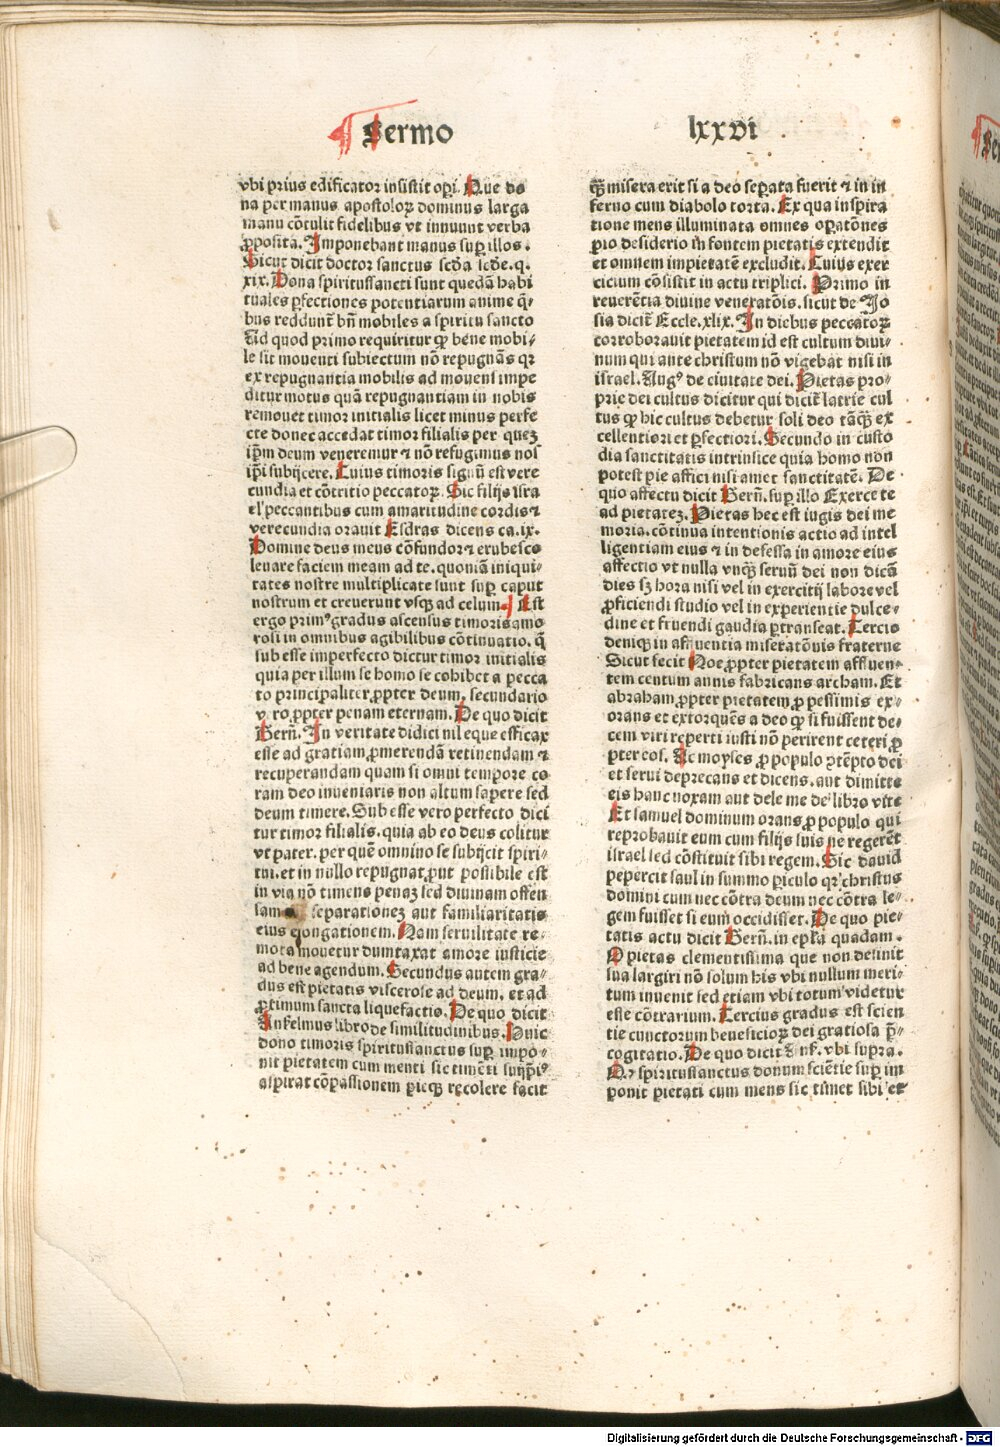 ¶ Sermo lxxvi
vbi prius edificator insistit oꝑi. Que do
na per manus apostoloꝝ dominus larga
manu cõtulit fidelibus vt innuunt verba
ꝓposita. Imponebant manus suꝑ illos.
Sicut dicit doctor sanctus scḋa scḋe. q.
xix. Dona spiritussancti sunt quedã habi
tuales ꝑfectiones potentiarum anime q̃⸗
bus reddunt̃ bñ mobiles a spiritu sancto
Ad quod primo requiritur ꝙ bene mobi⸗
le sit mouenti subiectum nõ repugnãs qꝛ
ex repugnantia mobilis ad mouens impe
ditur motus quã repugnantiam in nobis
remouet timor initialis licet minus perfe
cte donec accedat timor filialis per quez
ip̃m deum veneremur ⁊ nõ refugimus nos
ip̃i subijcere. Cuius timoris signũ est vere
cundia et cõtritio peccatoꝝ. Sic filijs isra
el peccantibus cum amaritudine cordis ⁊
verecundia orauit Esdras dicens ca. ix.
Domine deus meus cõfundor ⁊ erubesco
leuare faciem meam ad te. quoniã iniqui⸗
tates nostre multiplicate sunt suꝑ caput
nostrum et creuerunt vsqꝫ ad celum. Est
ergo primꝰ gradus ascensus timoris amo
rosi in omnibus agibilibus cõtinuatio. q̃
sub esse imperfecto dictur timor initialis
quia per illum se homo se cohibet a pecca
to principaliter ꝓpter deum. secundario
v ro ꝓpter penam eternam. De quo dicit
Berñ. In veritate didici nil eque efficax
esse ad gratiam ꝓmerendã retinendam ⁊
recuperandam quam si omni tempore co
ram deo inueniaris non altum sapere sed
deum timere. Sub esse vero perfecto dici
tur timor filialis. quia ab eo deus colitur
vt pater. per quẽ omnino se subijcit spiri⸗
tui. et in nullo repugnat ꝓut possibile est
in via nõ timens penaz sed diuinam offen
sam separationez aut familiaritatis
eius elongationem. Nam seruilitate re⸗
mota mouetur dumtaxat amore iusticie
ad bene agendum. Secundus autem gra⸗
dus est pietatis viscerose ad deum. et ad
ꝓximum sancta liquefactio. De quo dicit
Anselmus libro de similitudinibus. Huic
dono timoris spiritussanctus suꝑ impo⸗
nit pietatem cum menti sic timẽti
aspirat cõpassionem recolere facit
qꝫ misera erit si a deo seꝑata fuerit ⁊ in in
ferno cum diabolo torta. Ex qua inspira
tione mens illuminata omnes oꝑatões
ꝓio desiderio in fontem pietatis extendit
et omnem impietatẽ excludit. Cuius exer
cicium cõsistit in actu triplici. Primo in
reuerẽtia diuine veneratõis. sicut de Jo
sia dicit̃ Eccle. xlix. In diebus peccatoꝝ
corroborauit pietatem id est cultum diui⸗
num qui ante christum nõ vigebat nisi in
israel. Augꝰ de ciuitate dei. Pietas pro⸗
prie dei cultus dicitur qui dicit̃ latrie cul
tus ꝙ hic cultus debetur soli deo tãqꝫ ex
cellentiori et ꝑfectiori. Secundo in custo
dia sanctitatis intrinsice quia homo non
potest pie affici nisi amet sanctitatẽ. De
quo affectu dicit Berñ. suꝑ illo Exerce te
ad pietatez. Pietas hec est iugis dei me
moria. cõtinua intentionis actio ad intel
ligentiam eius ⁊ in defessa in amore eius
affectio vt nulla vnqꝫ seruũ dei non dicã
dies sꝫ hora nisi vel in exercitij labore vel
ꝓficiendi studio vel in experientie dulce⸗
dine et fruendi gaudia ꝑtranseat. Tercio
deniqꝫ in affluentia miseratõuis fraterne
Sicut fecit Noe ꝓpter pietatem affluen⸗
tem centum annis fabricans archam. Et
abraham ꝓpter pietatem ꝓ pessimis ex⸗
orans et extorquẽs a deo ꝙ si fuissent de⸗
cem viri reperti iusti nõ perirent ceteri ꝓ
pter eos. Ac moyses ꝓ populo ꝯtẽpto dei
et serui deprecans et dicens. aut dimitte
eis hanc noxam aut dele me de libro vite
Et samuel dominum orans ꝓ populo qui
reprobauit eum cum filijs suis ne regerẽt
israel sed cõstituit sibi regem. Sic dauid
pepercit saul in summo ꝑiculo qꝛ christus
domini cum nec cõtra deum nec cõtra le⸗
gem fuisset si eum occidisset. De quo pie⸗
tatis actu dicit Berñ. in epl̃a quadam.
O pietas clementissima que non desinit
sua largiri nõ solum his vbi nullum meri⸗
tum inuenit sed etiam vbi totum videtur
esse cõtrarium. Tercius gradus est scien
tie cunctorum beneficioꝝ dei gratiosa p̃⸗
cogitatio. De quo dicit Ans. vbi supra.
spiritussanctus donum sciẽtie suꝑ im
ponit pietati cum mens sic timet sibi et